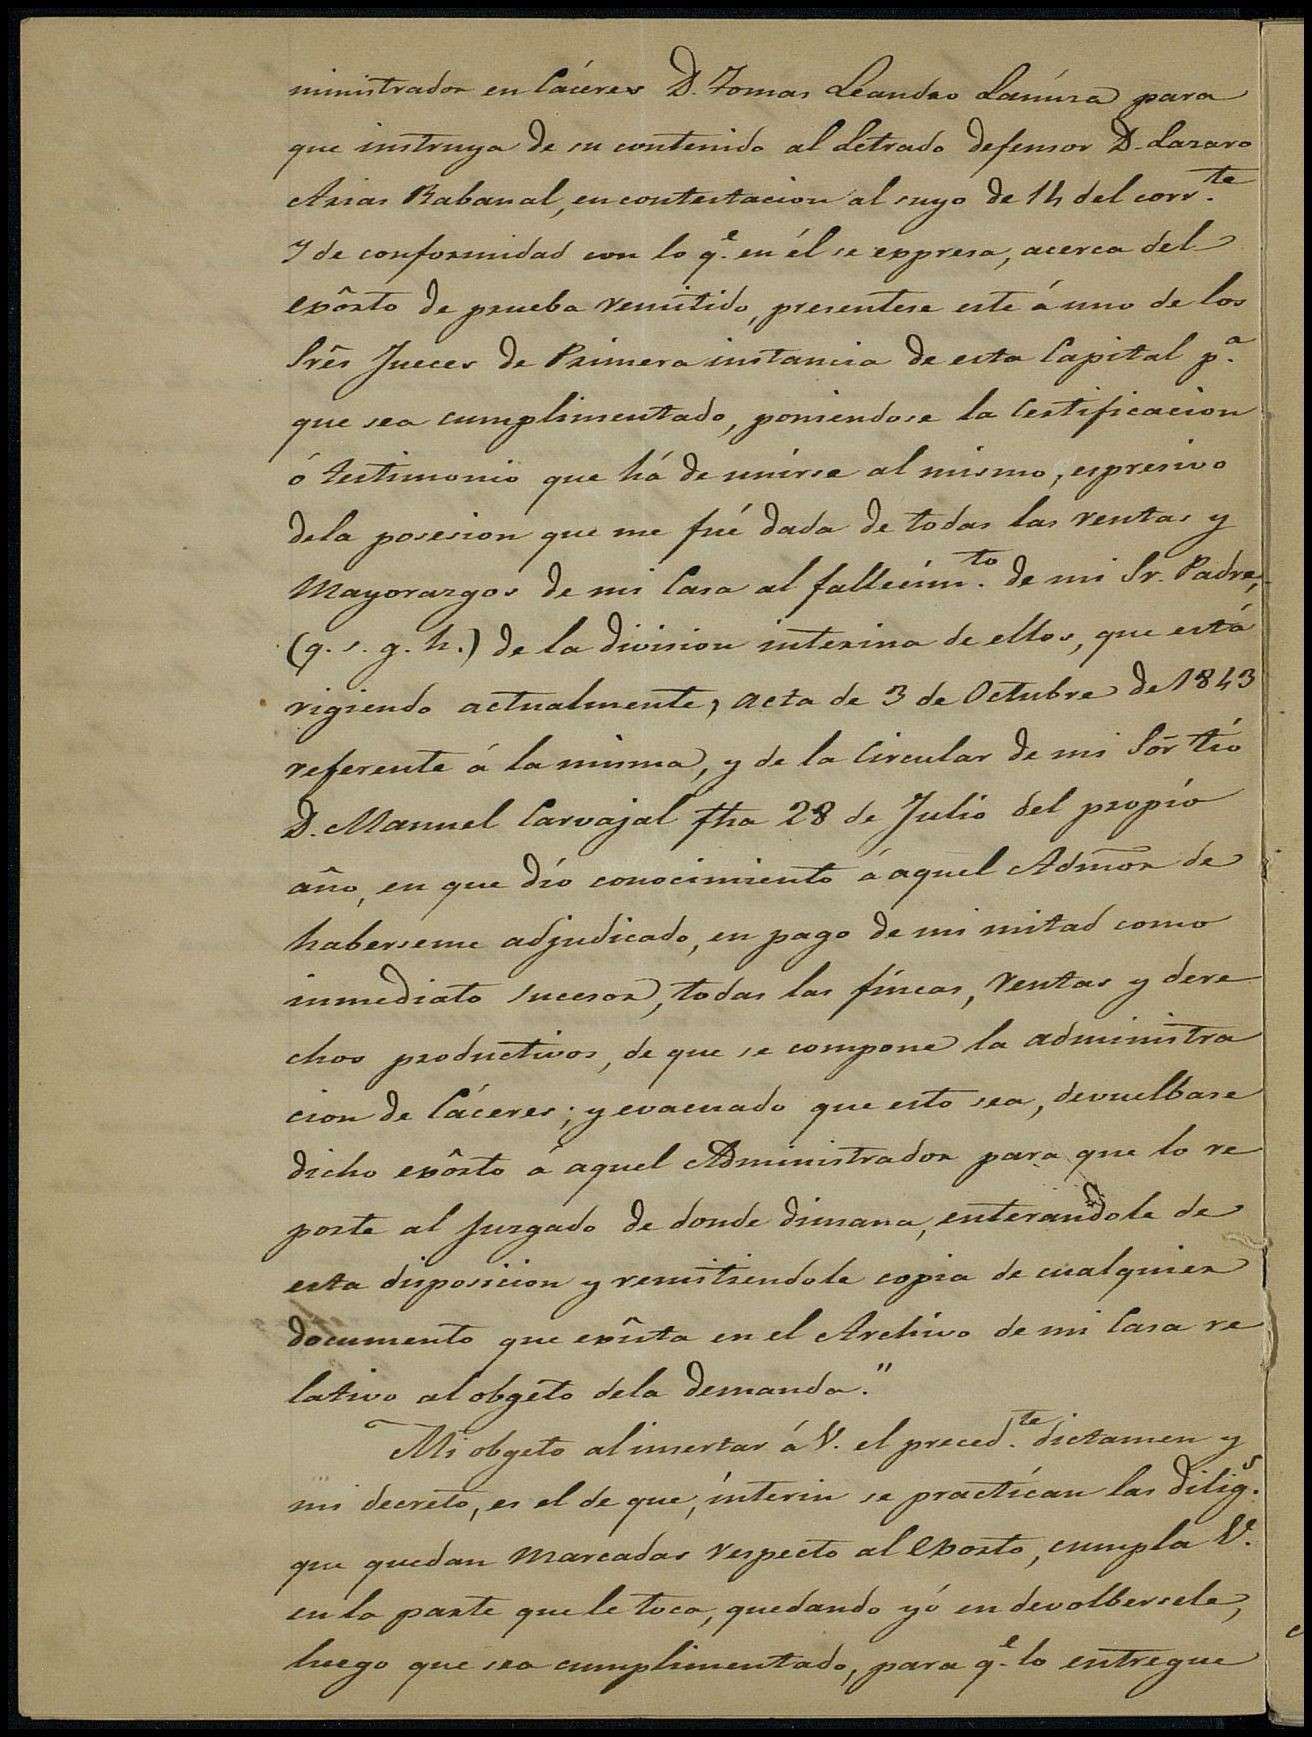 ministrador en Cáceres D. Tomas Leandro Lanuza para
que instruya de su contenido al Letrado defensor D. Lazaro
Arias Rabanal, en contestacion al suyo de 14 del corr.te
Y de conformidad con lo q.e en él se expresa, acerca del
exôrto de prueba remitido, presentese este á uno de los
Srẽs Jueces de Primera instancia de esta Capital p.a
que sea cumplimentado, poniendose la Certificacion
ó testimonio que há de unirse al mismo, espresivo
dela posesion que me fué dada de todas las rentas y
Mayorazgos de mi Casa al fallecim.to de mi Sr. Padre,
(q. s. g. h.) de la division interina de ellos, que está
rigiendo actualmente, acta de 3 de Octubre de 1843
referente á la misma, y de la Circular de mi Sõr tio
D. Manuel Carvajal fha 28 de Julio del propio
año, en que dió conocimiento á aquel Admõr de
haberseme adjudicado, en pago de mi mitad como
inmediato sucesor, todas las fincas, rentas y dere
chos productivos, de que se compone la administra
cion de Cáceres; y evacuado que esto sea, devuelbase
dicho exôrto á aquel Administrador para que lo re
porte al Juzgado de donde dimana, enterandole de
esta disposicion y remitiendole copia de cualquier
documento que exîsta en el Archivo de mi Casa re
lativo al obgeto dela demanda."
Mi obgeto al insertar á V. el preced.te dictamen y
mi decreto, es el de que, ínterin se practícan las dilig.s
que quedan marcadas respecto al Exorto, cumpla V.
en la parte que le toca, quedando yó en devolbersele,
luego que sea cumplimentado, para q.e lo entregue